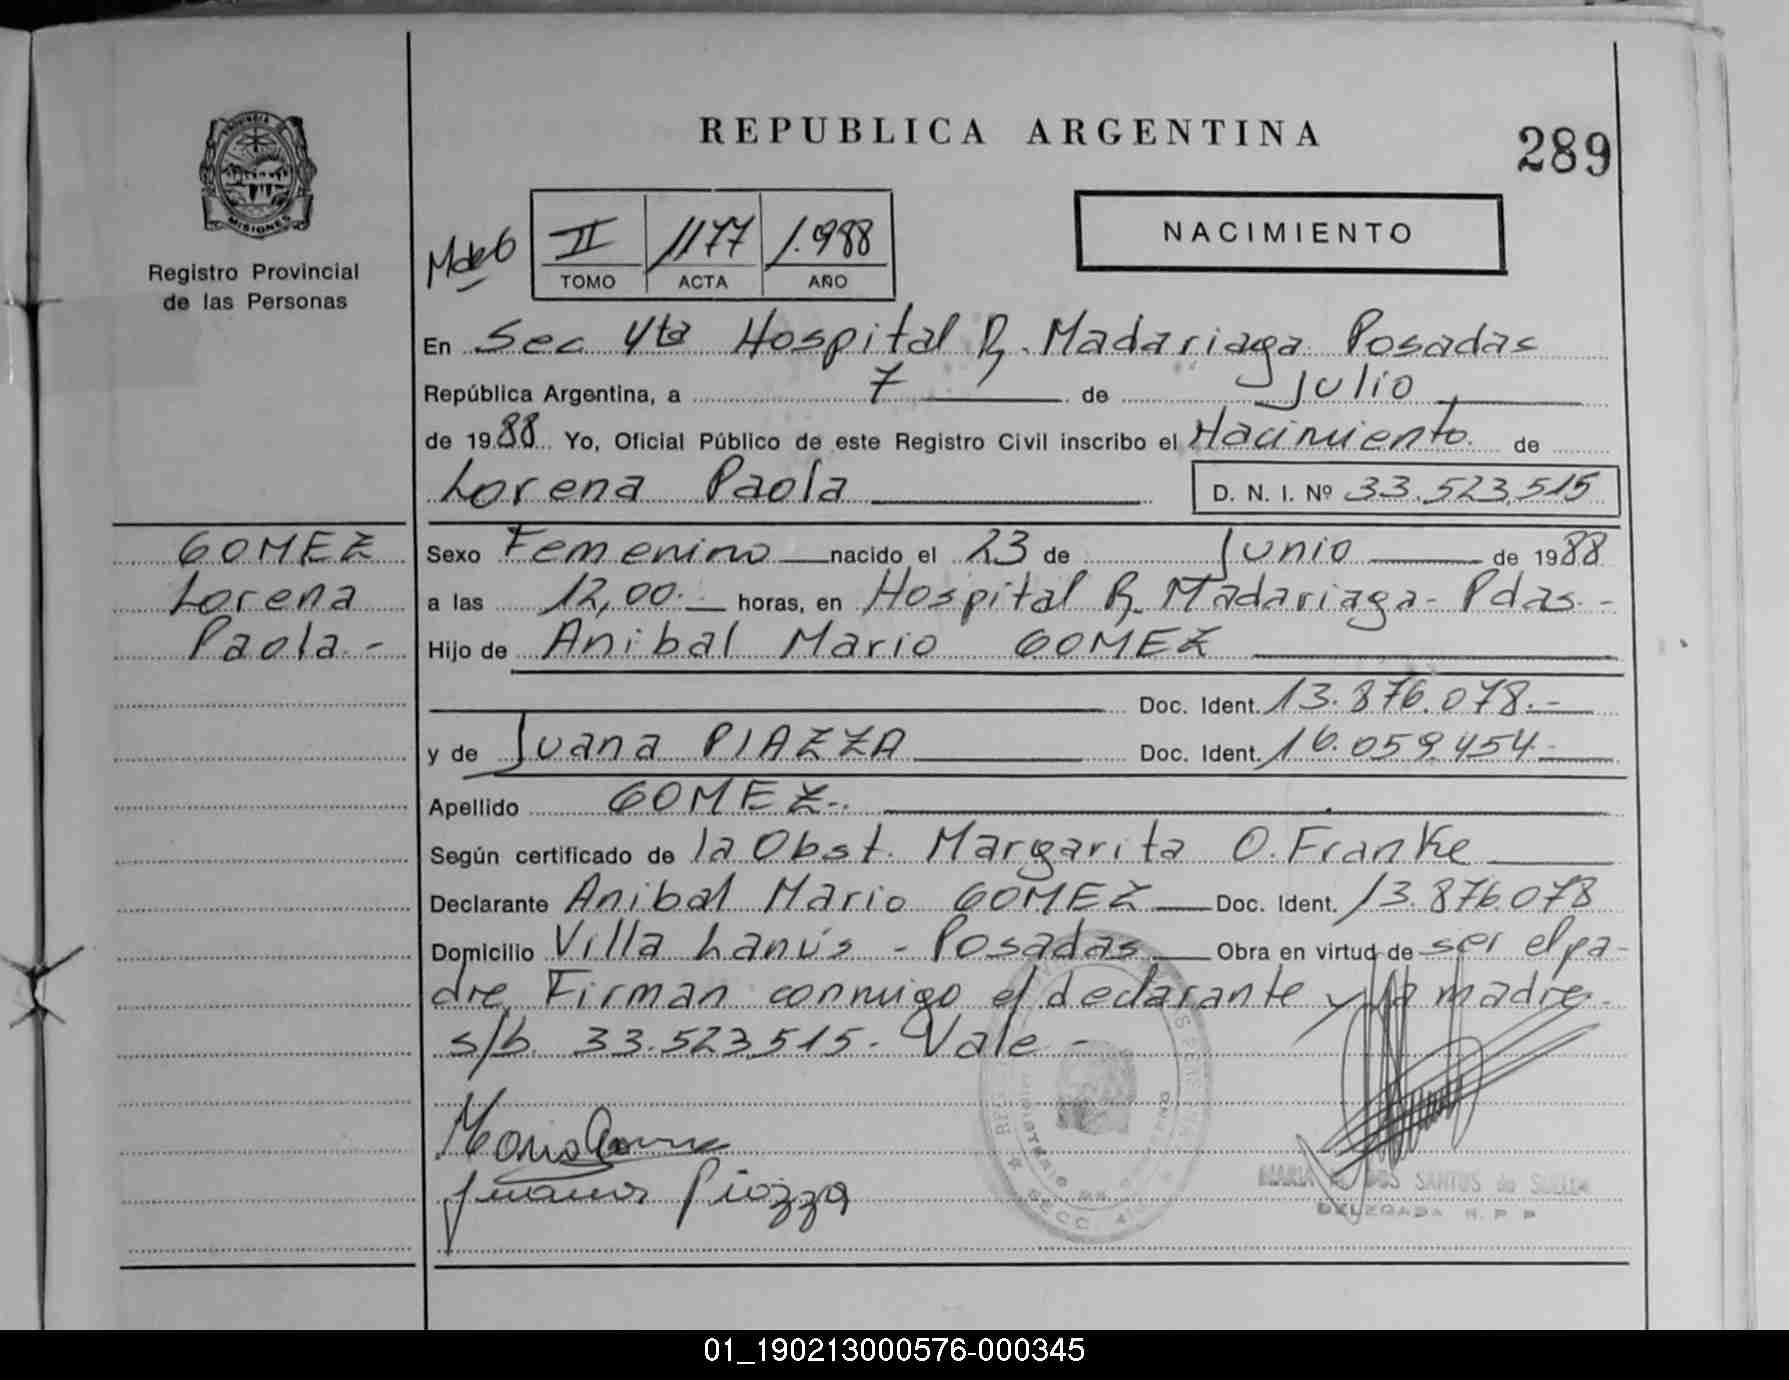 REPUBLICA ARGENTINA
289
PROVINCIA
MISIONES
Registro Provincial
de las Personas
II 1177 1.988
TOMO ACTA AÑO
NACIMIENTO
En Sec 4ta Hospital R. Madariaga Posadas
República Argentina, a 7 de Julio
de 1988 Yo, Oficial Público de este Registro Civil inscribo el Nacimiento de
Lorena Paola D. N. I. Nº 33.523.515
GOMEZ
Lorena
Paola.-
Sexo Femenino nacido el 23 de Junio de 1988
a las 12,00. horas, en Hospital R. Madariaga - Pdas. -
Hijo de Anibal Mario GOMEZ
Doc. Ident. 13.876.078.-
y de Juana PIAZZA Doc. Ident. 16.059.454.-
Apellido GOMEZ-.
Según certificado de la Obst. Margarita O. Franke
Declarante Anibal Mario GOMEZ Doc. Ident. 13.876.078
Domicilio Villa Lanús - Posadas Obra en virtud de ser el pa-
dre Firman conmigo el declarante y la madre.
s/b. 33.523.515. Vale -
Juana Piazza
MARIA DOS SANTOS de
DELEGADA R. P. P.
01_190213000576-000345